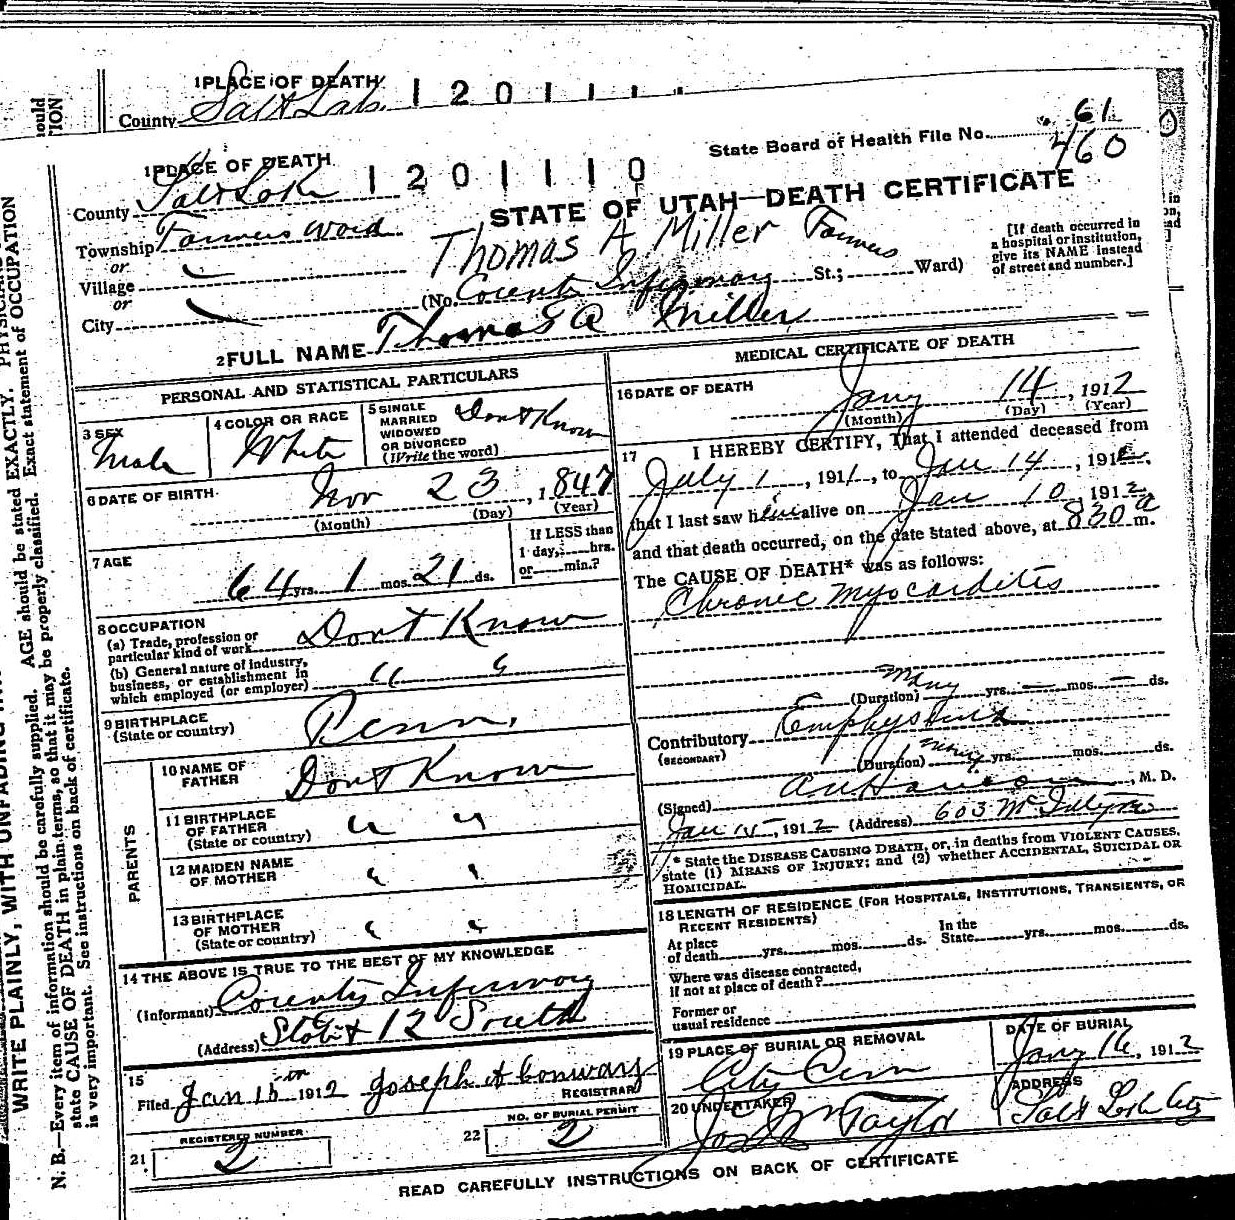 1 PLACE OF DEATH
County Salt Lake 1 2 0 1 1
1 PLACE OF DEATH 1 2 0 1 1 1 0
State Board of Health File No. 61
460
County Salt Lake
STATE OF UTAH—DEATH CERTIFICATE
Township Farmers Ward
Thomas A Miller
or
Village
or
City
(No. County Infirmary St.; Farmers Ward)
[If death occurred in
a hospital or institution,
give its NAME instead
of street and number.]
2 FULL NAME Thomas A Miller
PERSONAL AND STATISTICAL PARTICULARS
3 SEX
Male
4 COLOR OR RACE
White
5 SINGLE
MARRIED
WIDOWED
OR DIVORCED
(Write the word)
Don't Know
6 DATE OF BIRTH
Nov 23, 1847
(Month) (Day) (Year)
7 AGE
64 yrs. 1 mos. 21 ds.
If LESS than
1 day, hrs.
or min.?
8 OCCUPATION
(a) Trade, profession or
particular kind of work Don't Know
(b) General nature of industry,
business, or establishment in
which employed (or employer) " "
9 BIRTHPLACE
(State or country) Penn.
PARENTS
10 NAME OF
FATHER Don't Know
11 BIRTHPLACE
OF FATHER
(State or country) " "
12 MAIDEN NAME
OF MOTHER " "
13 BIRTHPLACE
OF MOTHER
(State or country) " "
14 THE ABOVE IS TRUE TO THE BEST OF MY KNOWLEDGE
(Informant) County Infirmary
(Address) State & 12 South
15
Filed Jan 15 1912 Joseph A Conway
REGISTRAR
REGISTERED NUMBER
21 2
NO. OF BURIAL PERMIT
22 2
MEDICAL CERTIFICATE OF DEATH
16 DATE OF DEATH
Jany 14, 1912
(Month) (Day) (Year)
17 I HEREBY CERTIFY, That I attended deceased from
July 1, 1911, to Jan 14, 1912.
that I last saw him alive on Jan 10, 1912
and that death occurred, on the date stated above, at 830 a m.
The CAUSE OF DEATH* was as follows:
Chronic Myocarditis
(Duration) many yrs. — mos. — ds.
Contributory Emphysema
(SECONDARY)
(Duration) many yrs. mos. ds.
(Signed) M. D.
Jan 15, 1912 (Address) 603
* State the DISEASE CAUSING DEATH, or, in deaths from VIOLENT CAUSES,
state (1) MEANS OF INJURY; and (2) whether ACCIDENTAL, SUICIDAL OR
HOMICIDAL.
18 LENGTH OF RESIDENCE (FOR HOSPITALS, INSTITUTIONS, TRANSIENTS, OR
RECENT RESIDENTS)
At place
of death yrs. mos. ds.
In the
State yrs. mos. ds.
Where was disease contracted,
if not at place of death?
Former or
usual residence
19 PLACE OF BURIAL OR REMOVAL
City Cem
DATE OF BURIAL
Jany 16, 1912
20 UNDERTAKER
Taylor
ADDRESS
Salt Lake City
READ CAREFULLY INSTRUCTIONS ON BACK OF CERTIFICATE
N. B.—Every item of information should be carefully supplied. AGE should be stated EXACTLY.
state CAUSE OF DEATH in plain terms, so that it may be properly classified. Exact statement of OCCUPATION
is very important. See instructions on back of certificate.